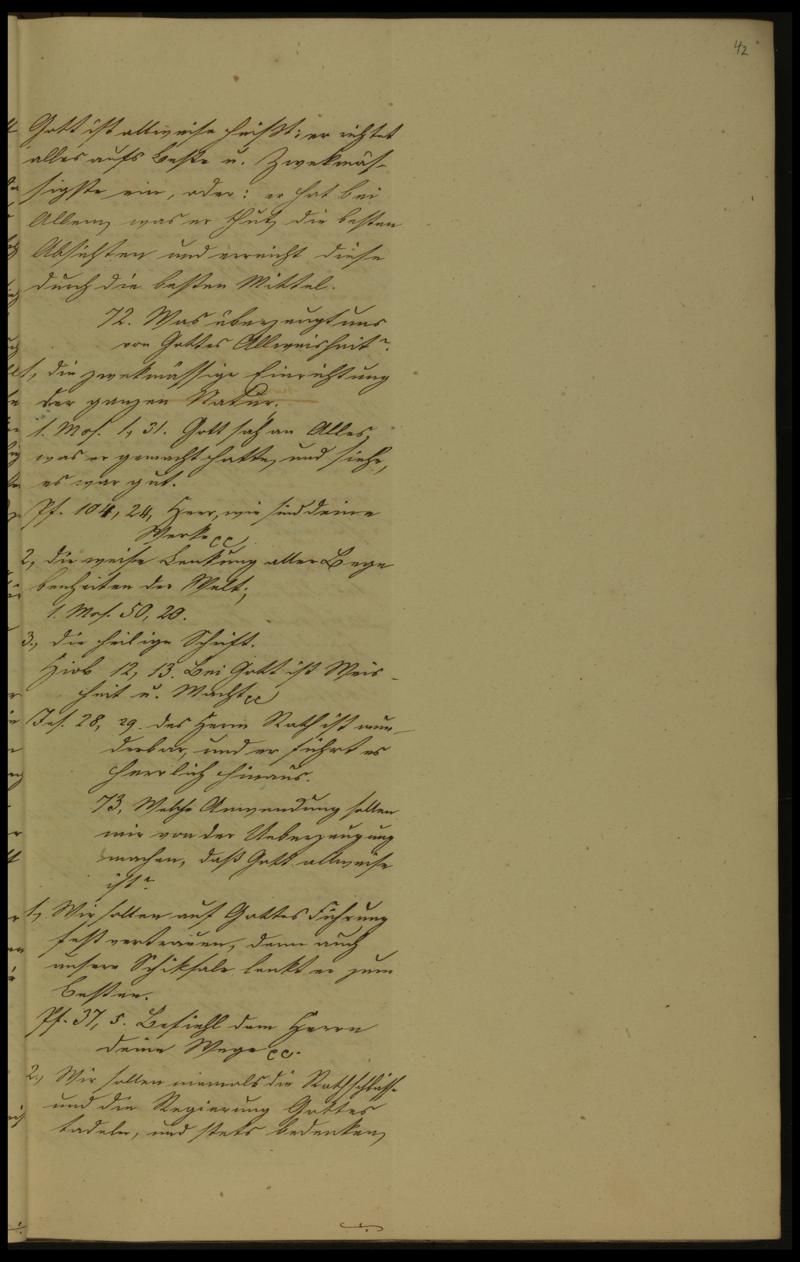 42
Gott ist allweise heißt: er richtet
alles aufs Beste u. Zwekmäs-
sigste ein, oder: er hat bei
Allem, was er thut, die besten
Absichten und erreicht diese
durch die besten Mittel.
72. Was überzeugt uns
von Gottes Allweisheit?
1, die zwekmässige Einrichtung
der ganzen Natur.
1. Mos. 1, 31. Gott sah an Alles,
was er gemacht hatte, und siehe,
es war gut.
Ps. 104, 24, Herr, wie sind deine
Werke cc
2, die weise Lenkung aller Bege
benheiten der Welt;
1. Mos. 50, 20.
3., die heilige Schrift.
Hiob 12, 13. Bei Gott ist Weis-
heit u. Macht cc
Jes. 28, 29. des Herrn Rath ist wun-
derbar, und er führt es
herrlich hinaus.
73, Welche Anwendung sollen
wir von der Ueberzeugung
machen, daß Gott allweise
ist?
1, Wir sollen auf Gottes Führung
fest vertrauen, denn auch
unsere Schiksale lenkt er zum
Besten.
Ps. 37, 5. Befiehl dem Herrn
deine Wege cc.
2., Wir sollen niemals die Rathschlüsse
und die Regierung Gottes
tadeln, und stets bedenken,